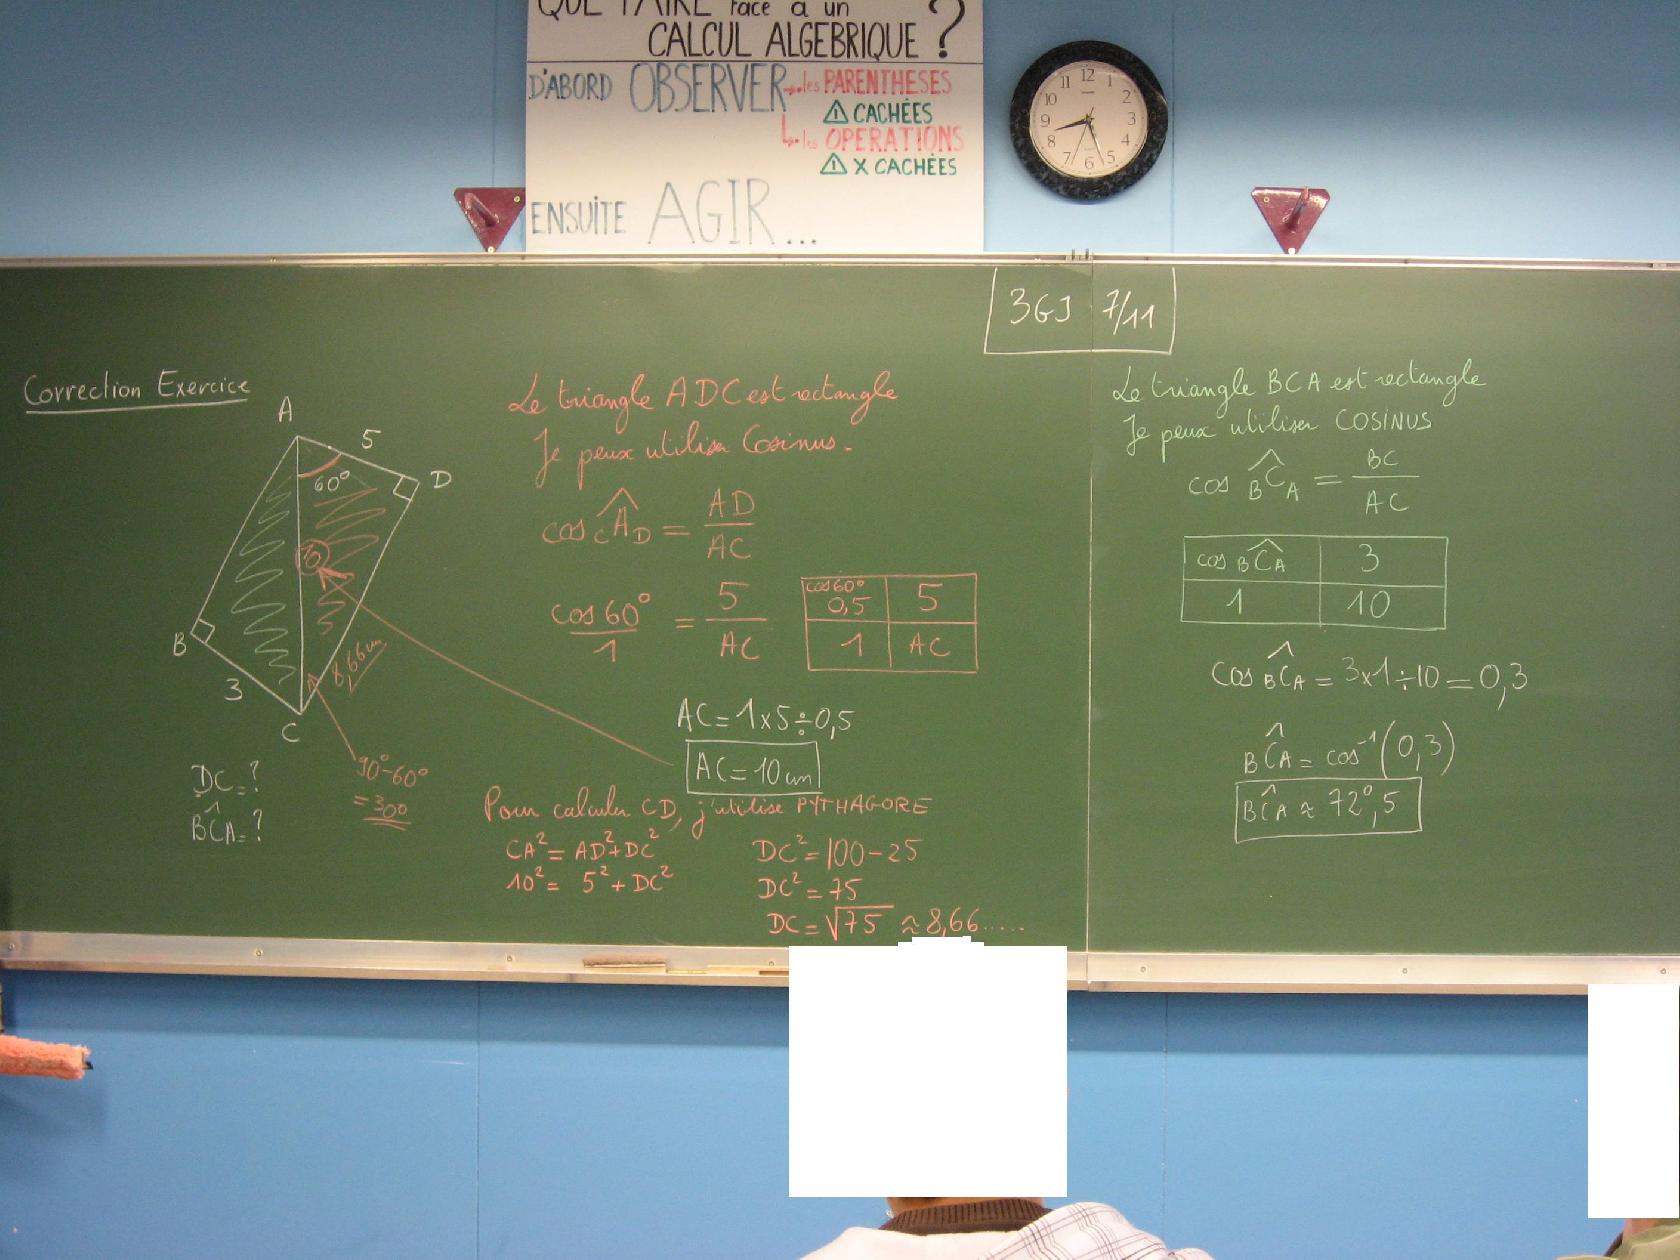 QUE FAIRE face à un
CALCUL ALGEBRIQUE ?
D'ABORD OBSERVER → les PARENTHESES
⚠ CACHÉES
↳ les OPERATIONS
⚠ X CACHÉES
ENSUITE AGIR...
12
1
2
3
4
5
6
7
8
9
10
11
3GJ 7/11
Correction Exercice
A
5
60°
D
10
B
3
8,66cm
C
90°-60°
=30°
DC=?
BĈA=?
Le triangle ADC est rectangle
Je peux utiliser Cosinus.
cos CÂD = AD/AC
cos60°/1 = 5/AC
cos60° 0,5 | 5
1 | AC
AC=1x5÷0,5
AC=10cm
Pour calculer CD, j'utilise PYTHAGORE
CA²=AD²+DC²
10²= 5²+DC²
DC²=100-25
DC²=75
DC=√75 ≈8,66.....
Le triangle BCA est rectangle
Je peux utiliser COSINUS
cos BĈA = BC/AC
cos BĈA | 3
1 | 10
cos BĈA = 3x1÷10=0,3
BĈA = cos⁻¹(0,3)
BĈA ≈ 72°,5